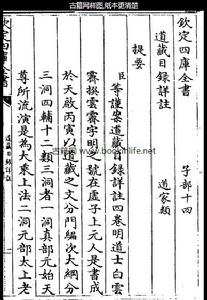 古籍网样图,纸本更清楚
欽定四庫全書
子部十四
道藏目録詳註
道家類
提要
臣等謹案道藏目録詳註四卷明道士白雲
霽撰雲霽字明之號在虛子上元人是書成
於天啟丙寅以道藏之文分門編次大綱分
三洞四輔十二類三洞者一洞真部元始天
尊所流演是為大乗上法一洞元部太上老
道藏目録詳註